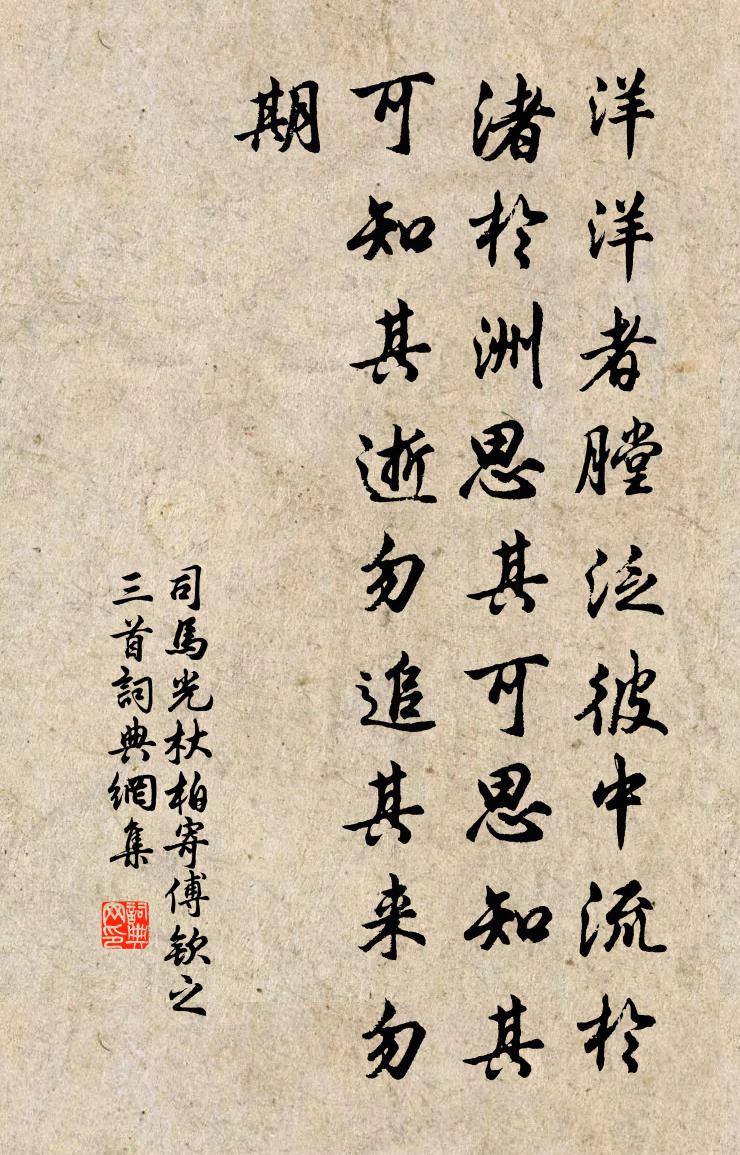 洋洋者膛泛彼中流於
渚於洲思其可思知其
可知其逝勿追其来勿
期
司馬光杕柏寄傅欽之
三首詞典網集
詞典
网印